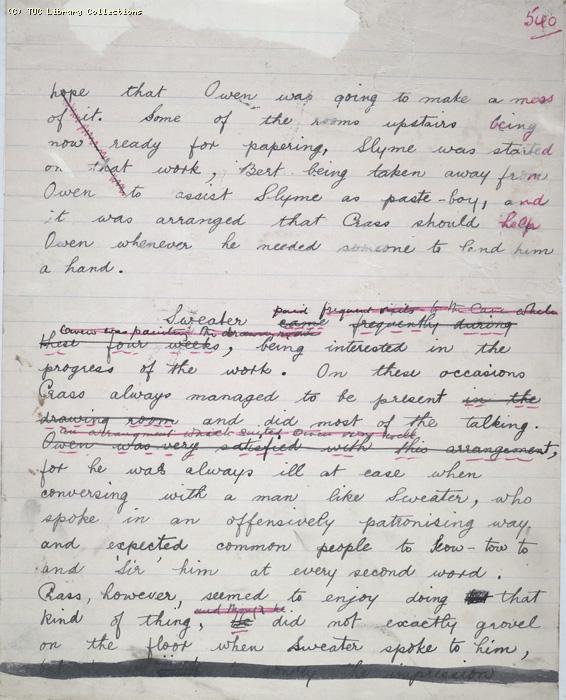 (C) TUC Library Collections
540
hope that Owen was going to make a mess
of it. Some of the rooms upstairs being
now ready for papering, Slyme was started
on that work, Bert being taken away from
Owen to assist Slyme as paste-boy, and
it was arranged that Crass should help
Owen whenever he needed someone to lend him
a hand.
paid frequent visits to the Cave whilst
Sweater came frequently during
Owen was painting the drawing room
these four weeks, being interested in the
progress of the work. On these occasions
Crass always managed to be present in the
drawing room and did most of the talking.
an arrangement which suited Owen very well,
Owen was very satisfied with this arrangement,
for he was always ill at ease when
conversing with a man like Sweater, who
spoke in an offensively patronising way
and expected common people to kow-tow to
and 'Sir' him at every second word.
Crass, however, seemed to enjoy doing that
and though he
kind of thing, He did not exactly grovel
on the floor when Sweater spoke to him,
convey the impression